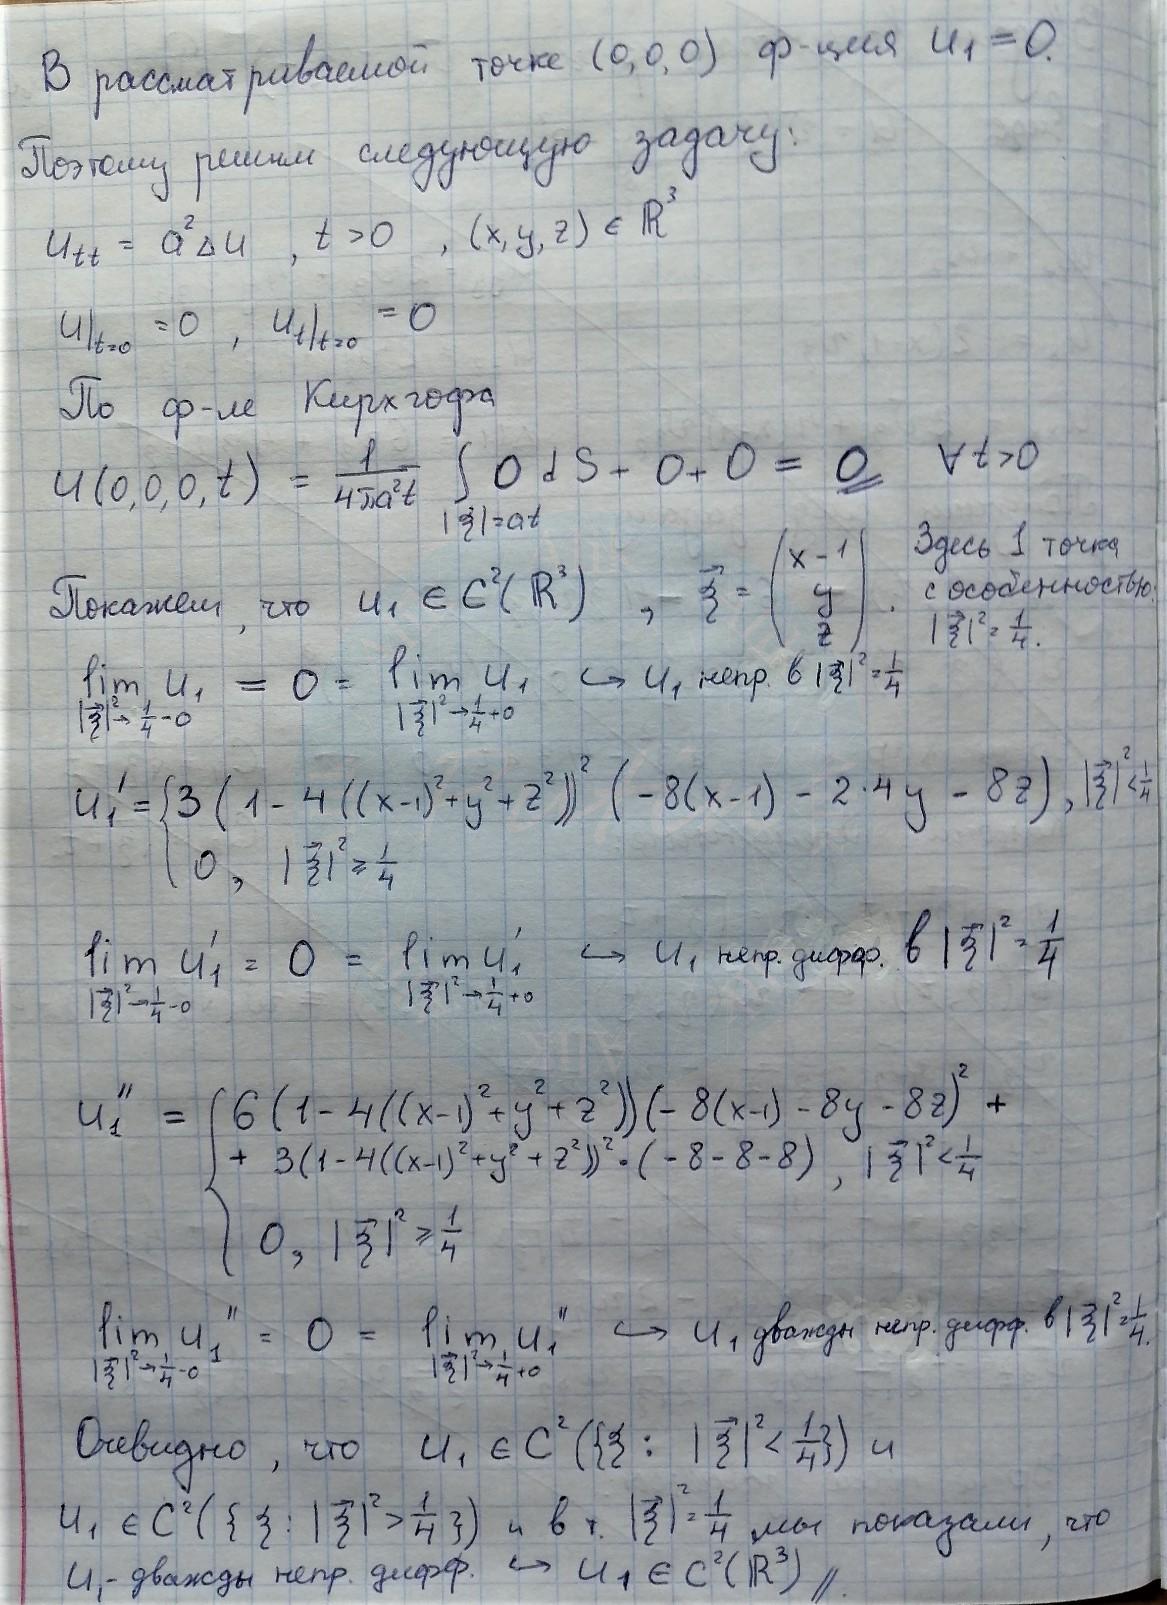 В рассматриваемой точке (0,0,0) ф-ция u₁ = 0.
Поэтому решим следующую задачу:
u_tt = a²Δu , t>0 , (x,y,z) ∈ ℝ³
u|_{t=0} = 0 , u_t|_{t=0} = 0
По ф-ле Кирхгофа
u(0,0,0,t) = 1/(4πa²t) ∫_{|ξ|=at} 0 dS + 0 + 0 = 0 ∀t>0
Покажем, что u₁ ∈ C²(ℝ³) , ξ⃗ = (x-1 y z) . Здесь 1 точка с особенностью: |ξ⃗|² = 1/4.
lim_{|ξ⃗|²→1/4-0} u₁ = 0 = lim_{|ξ⃗|²→1/4+0} u₁ ↪ u₁ непр. в |ξ⃗|² = 1/4
u₁' = { 3(1-4((x-1)²+y²+z²))² (-8(x-1) - 2·4y - 8z) , |ξ⃗|² < 1/4
0, |ξ⃗|² ≥ 1/4
lim_{|ξ⃗|²→1/4-0} u₁' = 0 = lim_{|ξ⃗|²→1/4+0} u₁' ↪ u₁ непр. дифф. в |ξ⃗|² = 1/4
u₁'' = { 6(1-4((x-1)²+y²+z²))(-8(x-1) - 8y - 8z)² +
+ 3(1-4((x-1)²+y²+z²))²·(-8-8-8) , |ξ⃗|² < 1/4
0, |ξ⃗|² ≥ 1/4
lim_{|ξ⃗|²→1/4-0} u₁'' = 0 = lim_{|ξ⃗|²→1/4+0} u₁'' ↪ u₁ дважды непр. дифф. в |ξ⃗|² = 1/4.
Очевидно, что u₁ ∈ C²({ξ : |ξ⃗|² < 1/4}) и
u₁ ∈ C²({ξ : |ξ⃗|² > 1/4}) и в т. |ξ⃗|² = 1/4 мы показали, что
u₁ - дважды непр. дифф. ↪ u₁ ∈ C²(ℝ³) //.